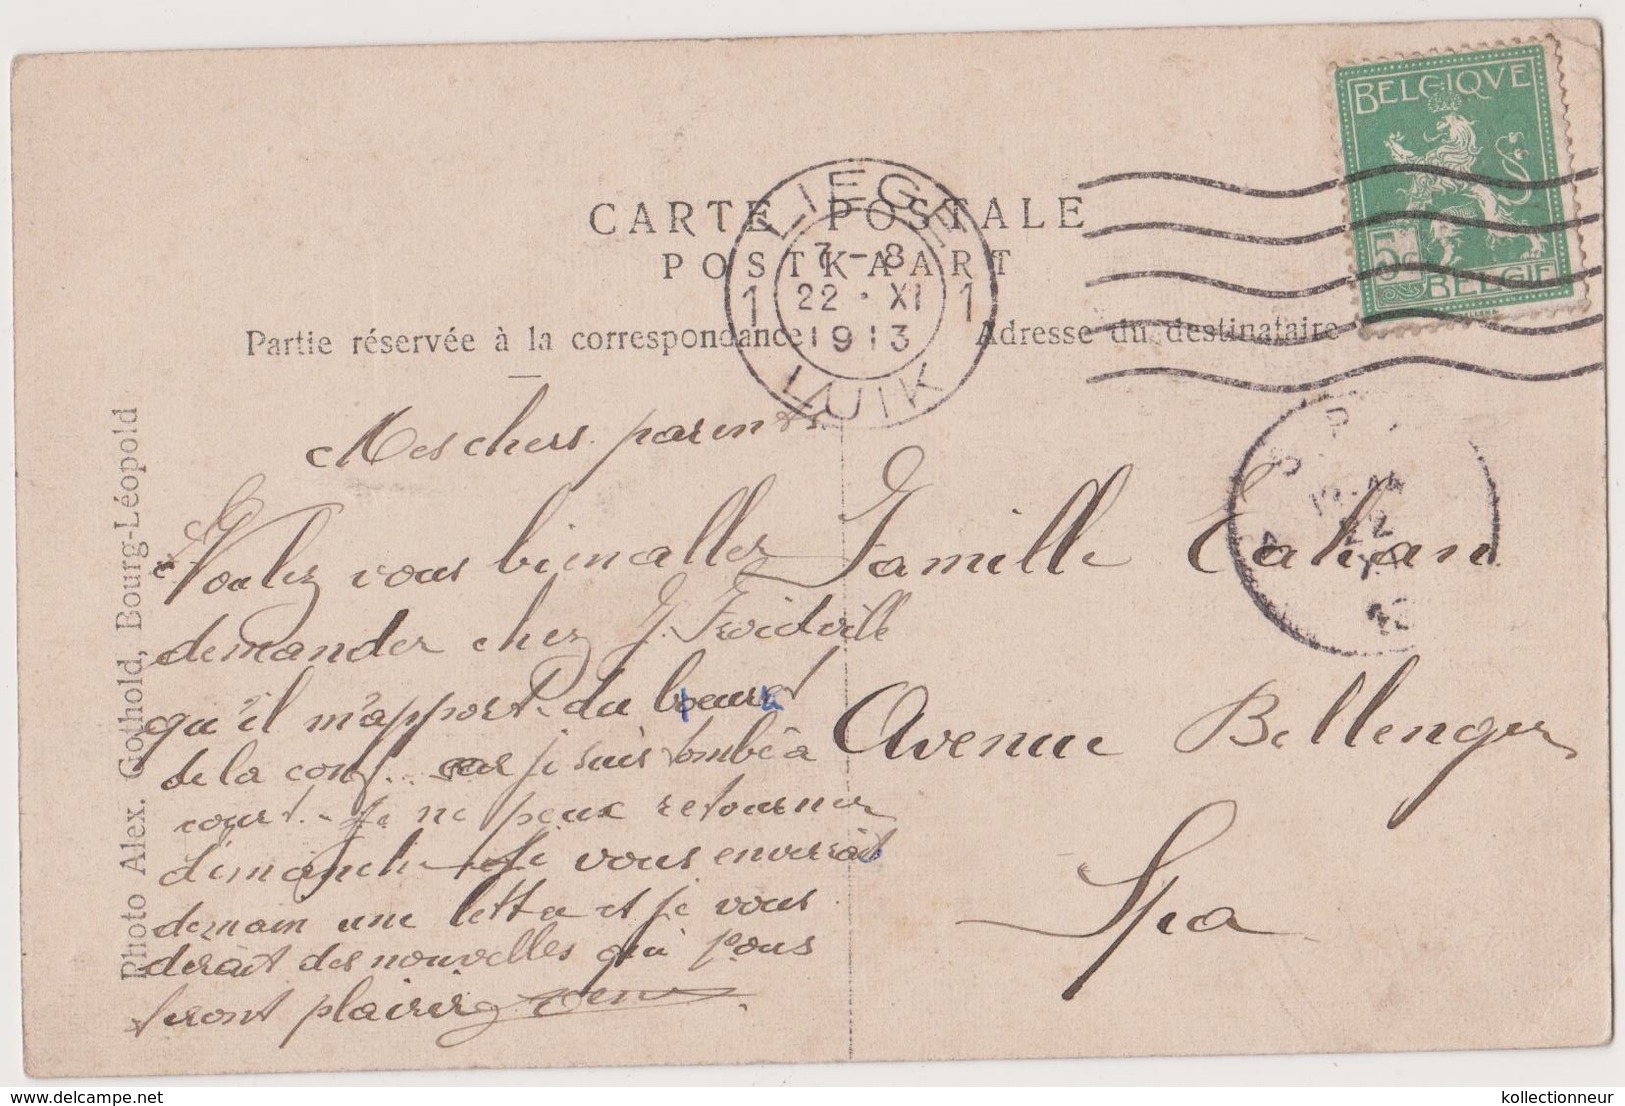 BELGIQVE
5c
BELGIE
CARTE POSTALE
POSTKAART
LIEGE
1 7-8 1
22 · XI
1913
LUIK
Partie réservée à la correspondance
Adresse du destinataire
Mes chers parents.
Voulez vous bien allez
demander chez J. Froidville
qu'il m'apport du beurre
de la conf... car je suis tombé à
court. Je ne peux retourner
dimanche Je vous enverrait
demain une lettre et je vous
derait des nouvelles qui vous
feront plairir
Famille Cahan
Avenue Bellenger
Spa
SPA
22
13
Photo Alex. Gothold, Bourg-Léopold
www.delcampe.net
kollectionneur